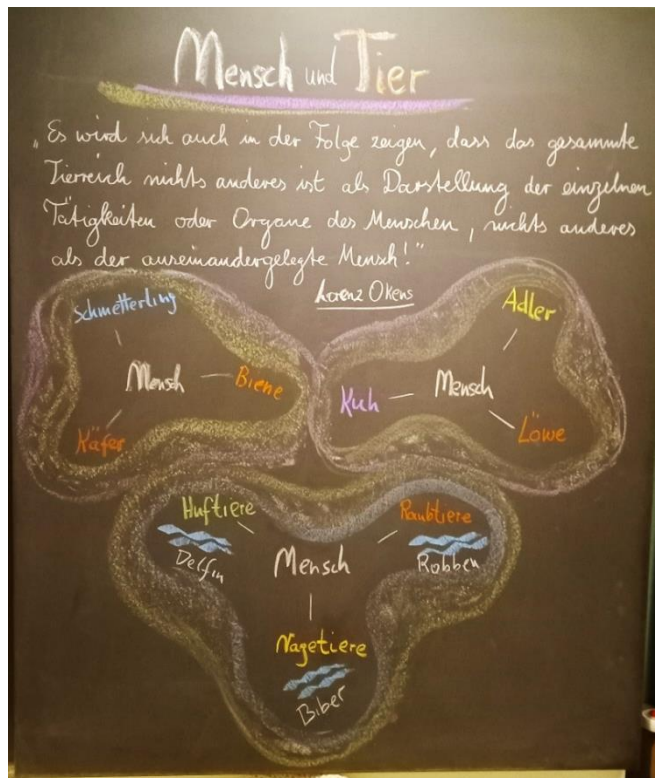 Mensch und Tier
„Es wird sich auch in der Folge zeigen, dass das gesammte
Tierreich nichts anderes ist als Darstellung der einzelnen
Tätigkeiten oder Organe des Menschen, nichts anderes
als der auseinandergelegte Mensch!"
Lorenz Okens
Schmetterling
Mensch
Biene
Käfer
Adler
Kuh
Mensch
Löwe
Huftiere
Delfin
Mensch
Raubtiere
Robben
Nagetiere
Biber